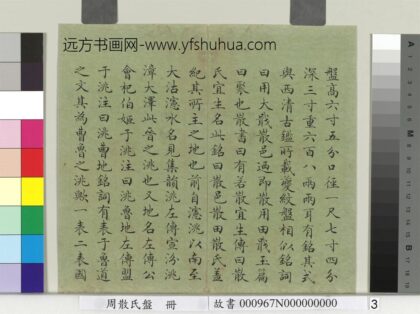 远方书画网-www.yfshuhua.com
盤高六寸五分口徑一尺七寸四分
深三寸重六百八兩兩耳有銘其式
與西清古鑑所載夔紋盤相似銘詞
曰用大戲散邑迺即散用田戲玉篇
曰聚也散書曰有若散宜生傳曰散
氏宜生名此銘曰散邑散田散氏蓋
紀其所主之地也前自瀗涉以南至
大沽瀗水名見集韻洮左傳宣汾洮
漳大澤此晉之洮也又地名左傳公
會杞伯姬于洮注曰洮魯地左傳盟
于洮注曰洮曹地銘詞有表于曹道
之文其為曹魯之洮歟一表二表國
周散氏盤 冊
故書 000967N000000000
3